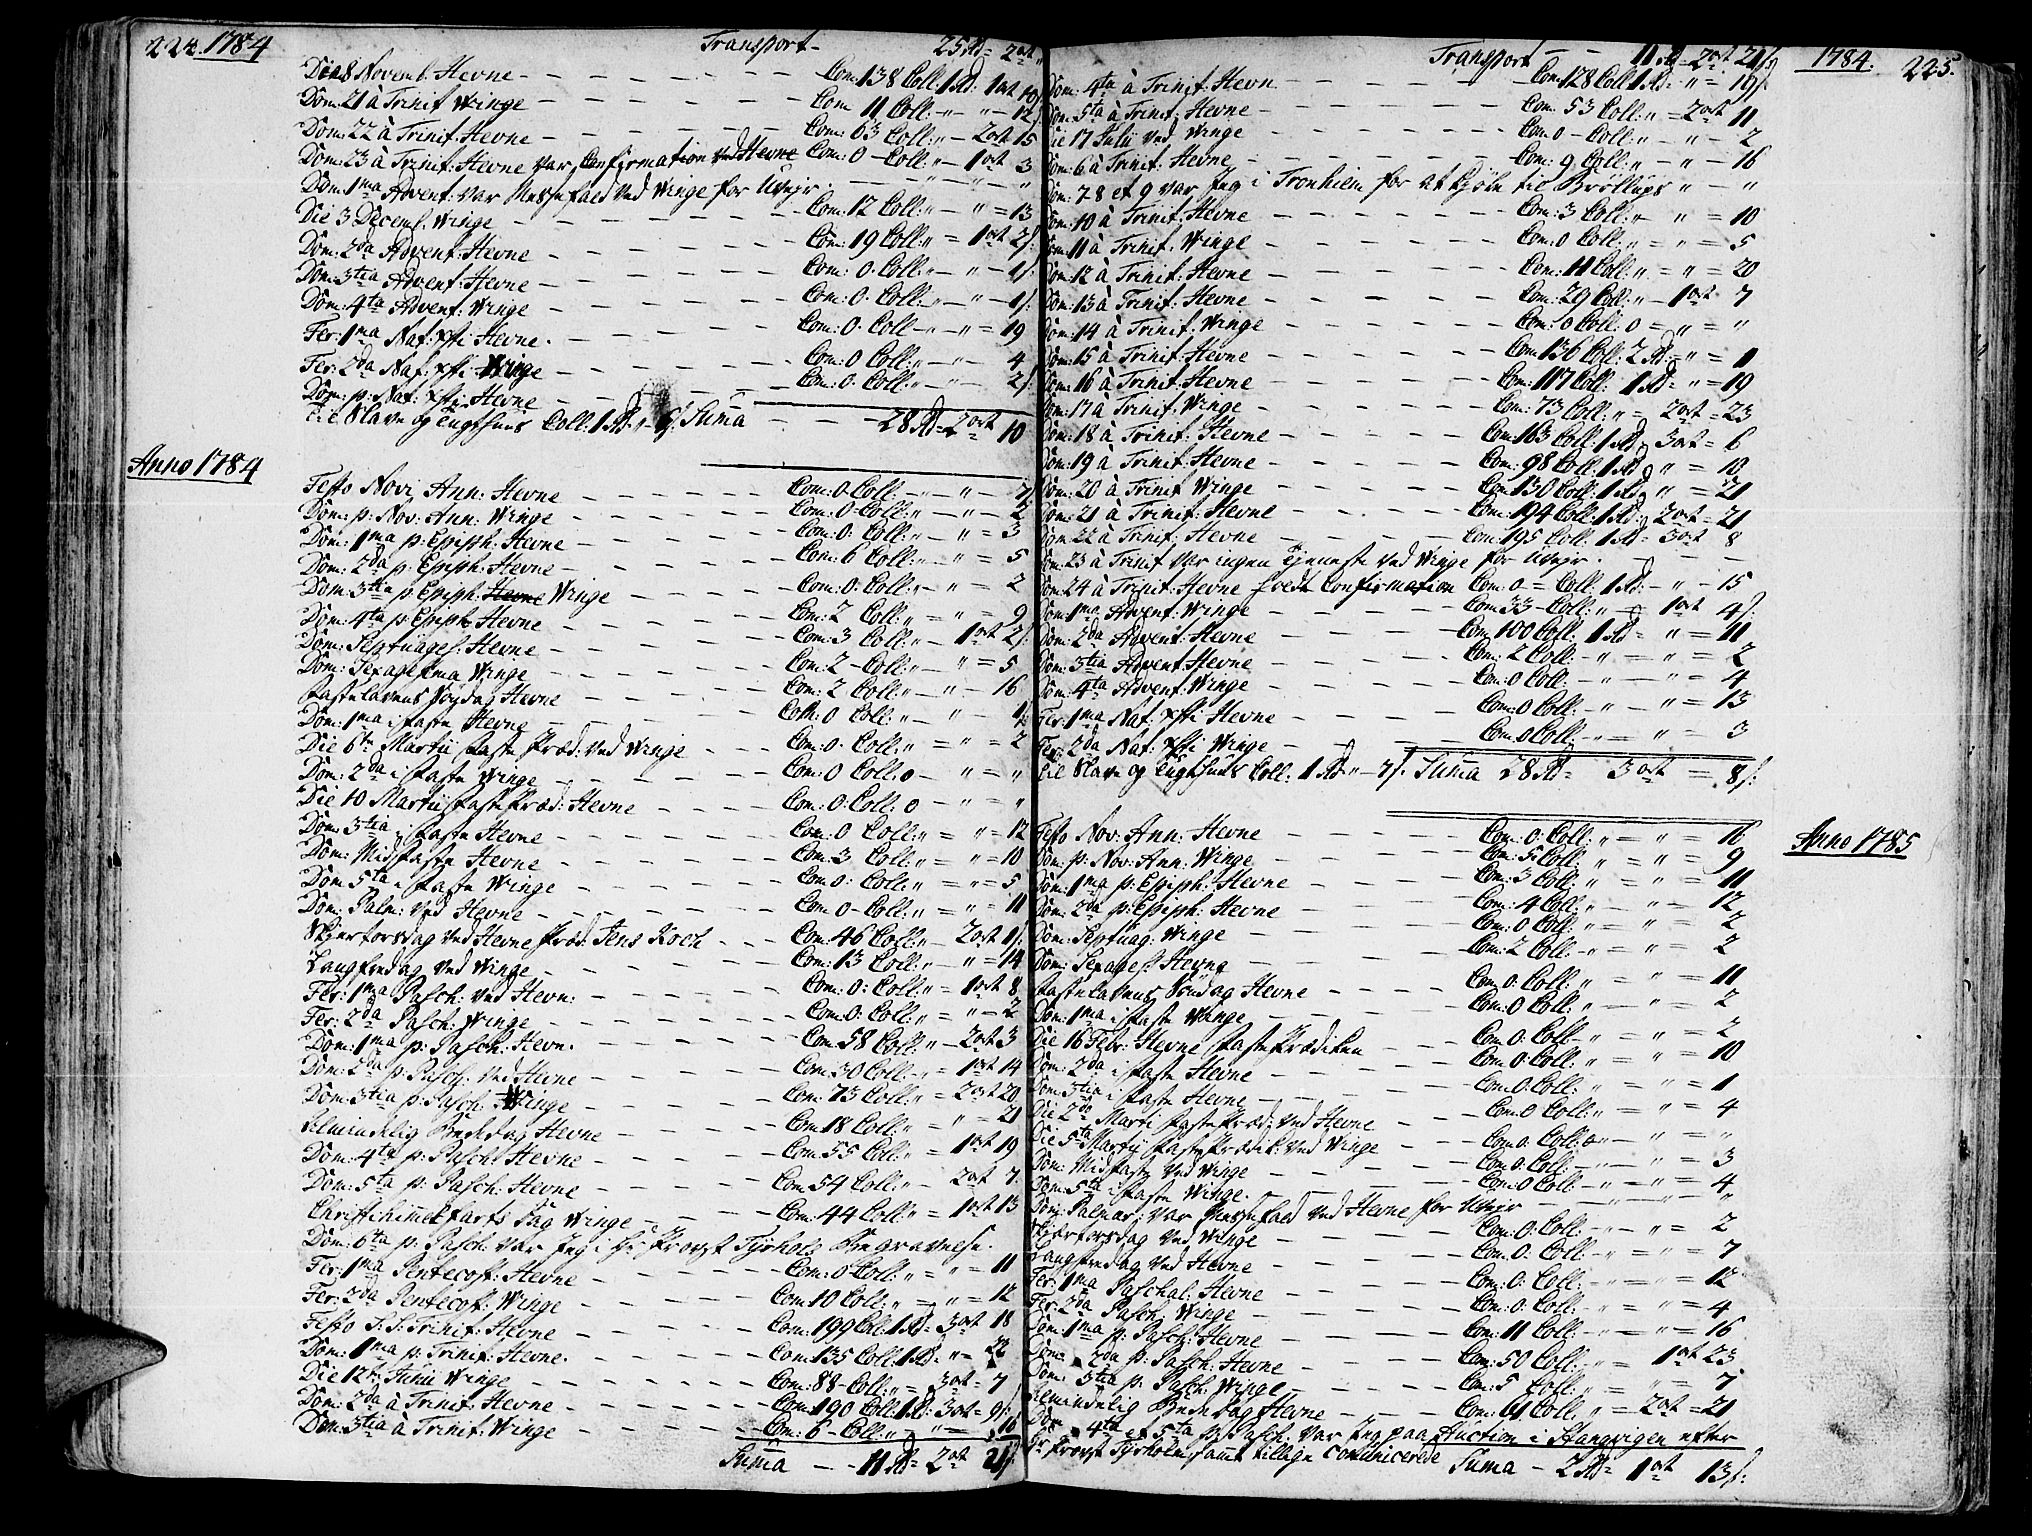 224. 1784
Transport - 25 Rd = 2 ort "
Die 8 Novemb. Hevne - Com: 138 Coll: 1 Rd: 1 ort 10
Dom: 21 à Trinit: Winge - Com 11 Coll: " - " - 12 s.
Dom: 22 à Trinit: Hevne - Com: 63 Coll: " - 2 ort 15
Dom: 23 à Trinit: Hevne var Confirmation ved Hevne Com: 0 - Coll: " - 1 ort 3
Dom: 1ma Advent: var Messefald ved Winge for Uvejr. - " - " - "
Die 3 Decemb. Winge - Com: 12 Coll: " - " = 13
Dom: 2da Advent: Hevne - Com: 19 Coll: " = 1 ort 2 s.
Dom: 3tia Advent: Hevne - Com: 0. Coll: " - " - 1 s.
Dom: 4ta Advent: Winge - Com: 0. Coll: " - " - 1 s.
Fer: 1ma Nat: Xsti Hevne. - Com: 0. Coll - " - " = 19
Fer: 2da Nat: Xsti Winge - Com: 0 Coll: " - " - 4
Dom: p: Nat: Xsti Hevne - Com: 0. Coll: " - " - 2 s.
til Slave og Tugthuus Coll: 1 Rd: " 6 s. Suma - 28 Rd = 2 ort 10
Anno 1784
Festo Novi Ann: Hevne - Com: 0 Coll: - " - " - 7
Dom: p: Nov: Ann: Winge - Com: 0 Coll: " - " - 2
Dom: 1ma p: Epiph: Hevne - Com: 0: Coll: " - " = 3
Dom: 2da p: Epiph: Hevne - Com: 6 Coll: " - " = 5
Dom: 3tia p: Epiph: Hevne Winge - Com: 0: Coll: " - " = 2
Dom: 4ta p: Epiph: Hevne - Com: 2 Coll: " = " = 9
Dom: Septuages: Hevne - Com: 3 Coll: " - 1 ort 2 s.
Dom: Sexagesima Winge - Com: 2 - Coll: " - " = 5
Fastelavns Søndag Hevne - Com: 2 Coll: " - " - 16
Dom: 1ma i Faste Hevne - Com: 0 Coll: " - " - 4
Die 6te Martij Faste Præd: ved Winge - Com: 0. Coll: " = " = 2
Dom: 2da i Faste Winge - Com: 0 Coll: 0 - " = "
Die 10 Martij Faste Præd: Hevne - Com: 0: Coll: 0 - " = "
Dom: 3tia i Faste Hevne - Com: 0 Coll: " = " = 12
Dom: Midfaste Hevne - Com: 3 Coll: " = " = 10
Dom 5ta i Faste Winge - Com: 0: Coll: " = " = 5
Dom: Palm: ved Hevne - Com: 0 - Coll: " = " = 11
Skjertorsdag ved Hevne Præd: Jens Koch - Com: 46 Coll: " - 2 ort 1 s.
Langfredag ved Winge - Com: 13 Coll: " - " = 14
Fer: 1ma Pasch: ved Hevn: - Com: 0: Coll: " = 1 ort 8
Fer: 2da Pasch: Winge - Com: 0: Coll: " = " - 2
Dom: 1ma p: Pasch: Hevn. - Com: 58 Coll: " - 2 ort 3
Dom: 2da p: Pasch: ved Hevne - Com: 30 Coll: " = 1 ort 14
Dom: 3tia p: Pasch: Winge - Com: 73 Coll: " = 2 ort 20
Almindelig Bededag Hevne - Com 18 Coll: " = " = 21
Dom: 4ta p: Pasch: Hevne - Com: 55 Coll: " = 1 ort 19
Dom: 5ta p: Pasch: Hevne - Com 54 Coll: " - 2 ort 7.
Christi himmelfarts Dag Winge - Com: 44 Coll: " = 1 ort 13
Dom: 6ta p: Pasch: var Jeg i Hr Provst Tyrholms Begravelse.
Fer: 1ma Pentecost: Hevne - Com: 0 Coll: " = " = 11
Fer: 2da Pentecost: Winge - Com 10 Coll: " = " = 12
Festo S: S: Trinit: Hevne - Com: 199 Coll: 1 Rd = 3 ort 18
Dom: 1ma p: Trinit: Hevne. - Com 135 Coll: 1 Rd: " = 22
Die 12te Junii Winge - Com: 88 - Coll: " = 3 ort = 7
Dom: 2da à Trinit: Hevne - Com: 190 Coll: 1 Rd: 3 ort = 9 s.
Dom: 3tia à Trinit: Winge - Com: 6 - Coll: " - " = 10
Suma - 11 Rd = 2 ort 21 s.
Transport - 11 Rd - 2 ort 21 s. 1784. 225.
Dom: 4ta à Trinit: Hevn - Com: 128 Coll 1 Rd: " - 19 s.
Dom: 5ta à Trinit: Hevne - Com: 53 Coll: " = 2 ort 11
Die 17 Julii ved Winge - Com: 0 - Coll: " - " - 2
Dom: 6 à Trinit: Hevne - Com: 9 Coll: " - " - 16
Dom: 7 8 et 9 var Jeg i Tronhiem for at kjøbe til Brøllups " - "
Dom: 10 à Trinit: Hevne - Com: 3 Coll: " - " = 10
Dom: 11 à Trinit: Winge - Com: 0 Coll: " = " = 5
Dom: 12 à Trinit: Hevne - Com: 11 Coll: " = " = 20
Dom: 13 à Trinit: Hevne - Com: 29 Coll: " - 1 ort 7
Dom: 14 à Trinit: Winge - Com: 0 Coll: 0 = " = "
Dom: 15 à Trinit: Hevne - Com 136 Coll: 2 Rd: " = 1
Dom: 16 à Trinit: Hevne - Com: 117 Coll: 1 Rd = " = 19
Dom: 17 à Trinit: Winge - Com: 73 Coll: " = 2 ort = 23
Dom: 18 à Trinit: Hevne - Com: 163 Coll: 1 Rd = 3 ort = 6
Dom: 19 à Trinit: Hevne - Com: 98 Coll: 1 Rd " = 10
Dom: 20 à Trinit Winge - Com 130 Coll: 1 Rd: " = 21
Dom: 21 à Trinit: Hevne - Com: 194 Coll: 1 Rd: 2 ort = 21
Dom 22 à Trinit: Hevne - Com: 195 Coll. 1 Rd = 3 ort 8
Dom: 23 à Trinit var ingen Tjenneste ved Winge for Uvejr. -
Dom: 24 à Trinit: Hevne holdt Confirmation Com: 0 = Coll: 1 Rd: - " - 15
Dom: 1ma Advent: Winge - Com: 33 - Coll: " - 1 ort 4 s.
Dom: 2da Advent: Hevne - Com: 100 Coll: 1 Rd = " = 11
Dom: 3tia Advent: Hevne - Com: 2 Coll: - " = " = 2
Dom: 4ta Advent: Winge - Com: 0 Coll: - " - " = 4
Fer: 1ma Nat: Xsti Hevne - Com: 0 Coll: - " - " = 13
Fer: 2da Nat: Xsti Winge - Com: 0 Coll: - " = " = 3
til Slave og Tugthuus Coll. 1 Rd " - 7 s. Suma 28 Rd = 3 ort = 8 s.
Anno 1785
Festo Nov: Ann: Hevne - Com: 0: Coll: " = " = 16
Dom: p: Nov: Ann: Winge - Com: 5 Coll: " = " = 9
Dom: 1ma p: Epiph: Hevne - Com: 3 Coll: " = " = 11
Dom: 2da p: Epiph: Hevne - Com: 4 Coll: " - " - 12
Dom: Septuag: Winge - Com: 0 Coll: " = " = 2
Dom: Sexages: Hevne - Com: 2 Coll: - " = " = 2
Fastelavns Søndag Hevne - Com: 0: Coll: " = " = 11
Dom: 1ma i Faste Winge - Com: 0 Coll: " = " = 2
Die 16 Febr: Hevne Faste Prædiken - Com: 0: Coll - " = " = 2
Dom: 2da i Faste Hevne - Com: 0: Coll: " = " = 10
Dom: 3tia i Faste Hevne - Com: 0: Coll: " = " = 1
Die 2da Marti Faste Præd: ved Hevne - Com: 0 Coll: " = " = 4
Die 5ta Martij Faste Prædik: ved Winge - Com: 0: Coll: 0 - " = "
Dom: Midfaste ved Winge - Com: 0: Coll: - " - " = 3
Dom: 5ta i Faste Winge. - Com: 0 Coll: - " - " = 4
Dom: Palmar: var Messefald ved Hevne for Uvejr - " - " - "
Skjertorsdag ved Winge - Com: 0: Coll: - " - " = 2
Langfredag ved Hevne - Com: 0: Coll: - " = " = 7
Fer: 1ma Paschal: Hevne - Com: 0: Coll: - " = " = 12
Fer: 2da Pasch: Winge - Com: 0: Coll: - " = " = 4
Dom: 1ma p: Pasch: Hevne - Com: 11 Coll: - " = " = 16
Dom: 2da p: Pasch: Hevne - Com: 50 Coll: - " = 1 ort 23
Dom: 3tia p: Pasch: Winge - Com: 5 Coll: - " = " = 7
Almindelig Bededag Hevne - Com: 61 Coll: " = 2 ort = 21
Dom: 4ta et 5ta p: Pasch: var Jeg paa Auction i Stangvigen efter
Hr Provst Tyrholm samt tillige Comunicerede Suma - 2 Rd = 1 ort 13 s.